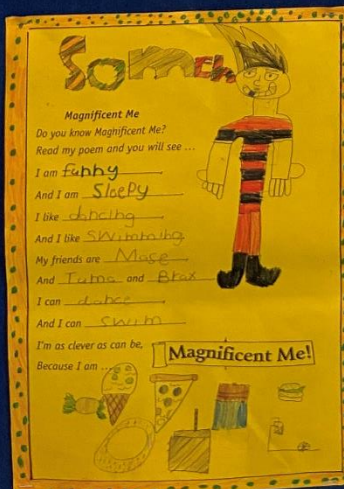 Somch
Magnificent Me
Do you know Magnificent Me?
Read my poem and you will see ...
I am funny.
And I am Sleepy
I like dancing
And I like swimming
My friends are Mase
And Tuma and Brax
I can dance
And I can swim
I'm as clever as can be,
Because I am ...
Magnificent Me!